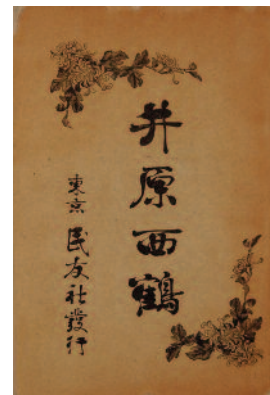 井原西鶴
東京 民友社發行